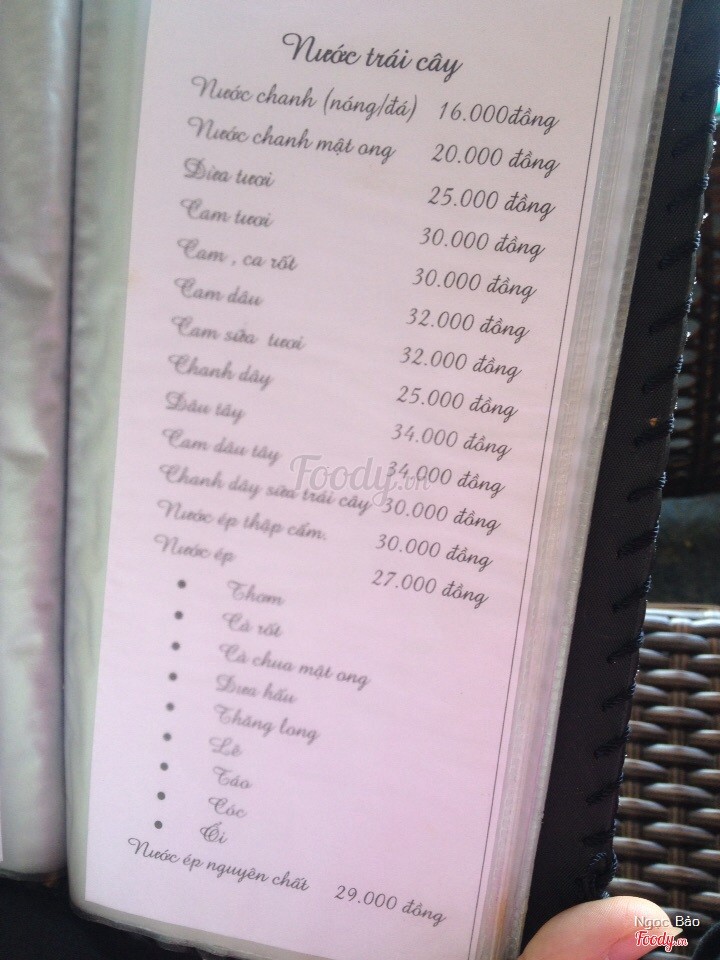 Nước trái cây
Nước chanh (nóng/đá) 16.000đồng
Nước chanh mật ong 20.000 đồng
Dừa tươi 25.000 đồng
Cam tươi 30.000 đồng
Cam , ca rốt 30.000 đồng
Cam dâu 32.000 đồng
Cam sữa tươi 32.000 đồng
Chanh dây 25.000 đồng
Dâu tây 34.000 đồng
Cam dâu tây 34.000 đồng
Chanh dây sữa trái cây 30.000 đồng
Nước ép thập cẩm. 30.000 đồng
Nước ép 27.000 đồng
• Thơm
• Cà rốt
• Cà chua mật ong
• Dưa hấu
• Thăng long
• Lê
• Táo
• Cóc
• Ổi
Nước ép nguyên chất 29.000 đồng
Foody.vn
Ngọc Bảo
Foody.vn